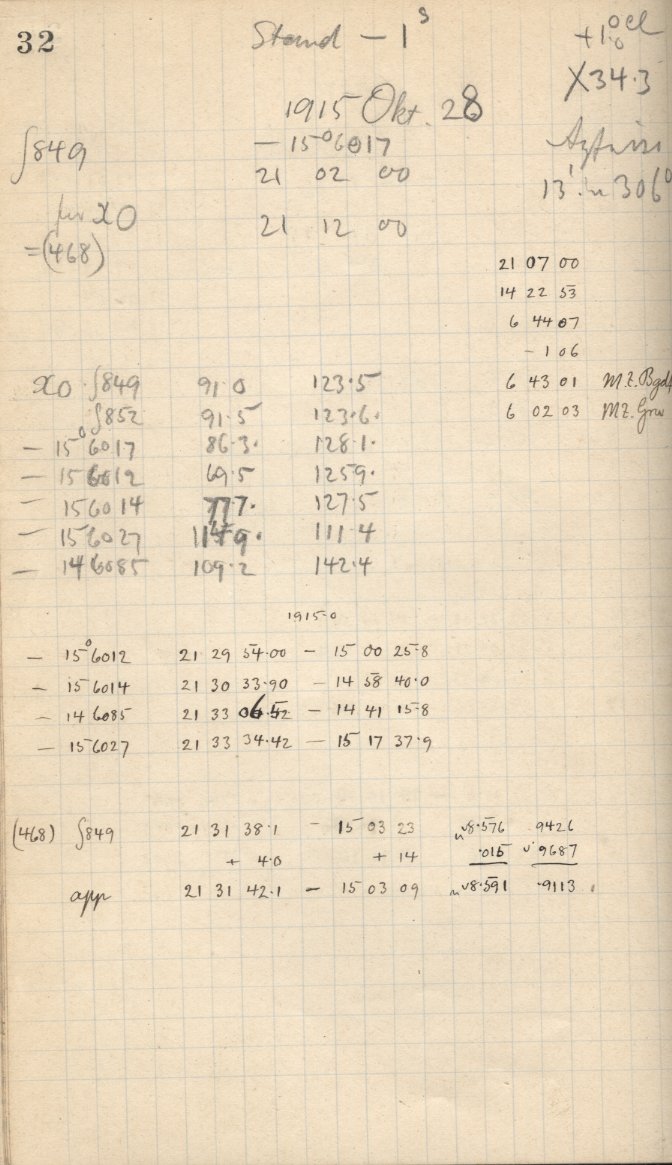 32 Stand - 1ˢ
X 34.3
1915 Okt. 28
- 15°6017
ʃ849 21 02 00
13' in 306°
für XO 21 12 00
=(468)
21 07 00
14 22 53
6 44 07
- 1 06
6 43 01 M.Z. Bgdf
6 02 03 MZ. Grw
XO ʃ849 91.0 123.5
ʃ852 91.5 123.6.
- 15°6017 86.3. 128.1.
- 156012 69.5 1259.
- 156014 777. 127.5
- 156027 111.4
- 146085 109.2 142.4
1915.0
- 15°6012 21 29 54.00 - 15 00 25.8
- 156014 21 30 33.90 - 14 58 40.0
- 146085 21 33 06.52 - 14 41 15.8
- 156027 21 33 34.42 - 15 17 37.9
(468) ʃ849 21 31 38.1 - 15 03 23 n8.576 .9426
+ 4.0 + 14 .015 9687
app 21 31 42.1 - 15 03 09 n8.591 .9113